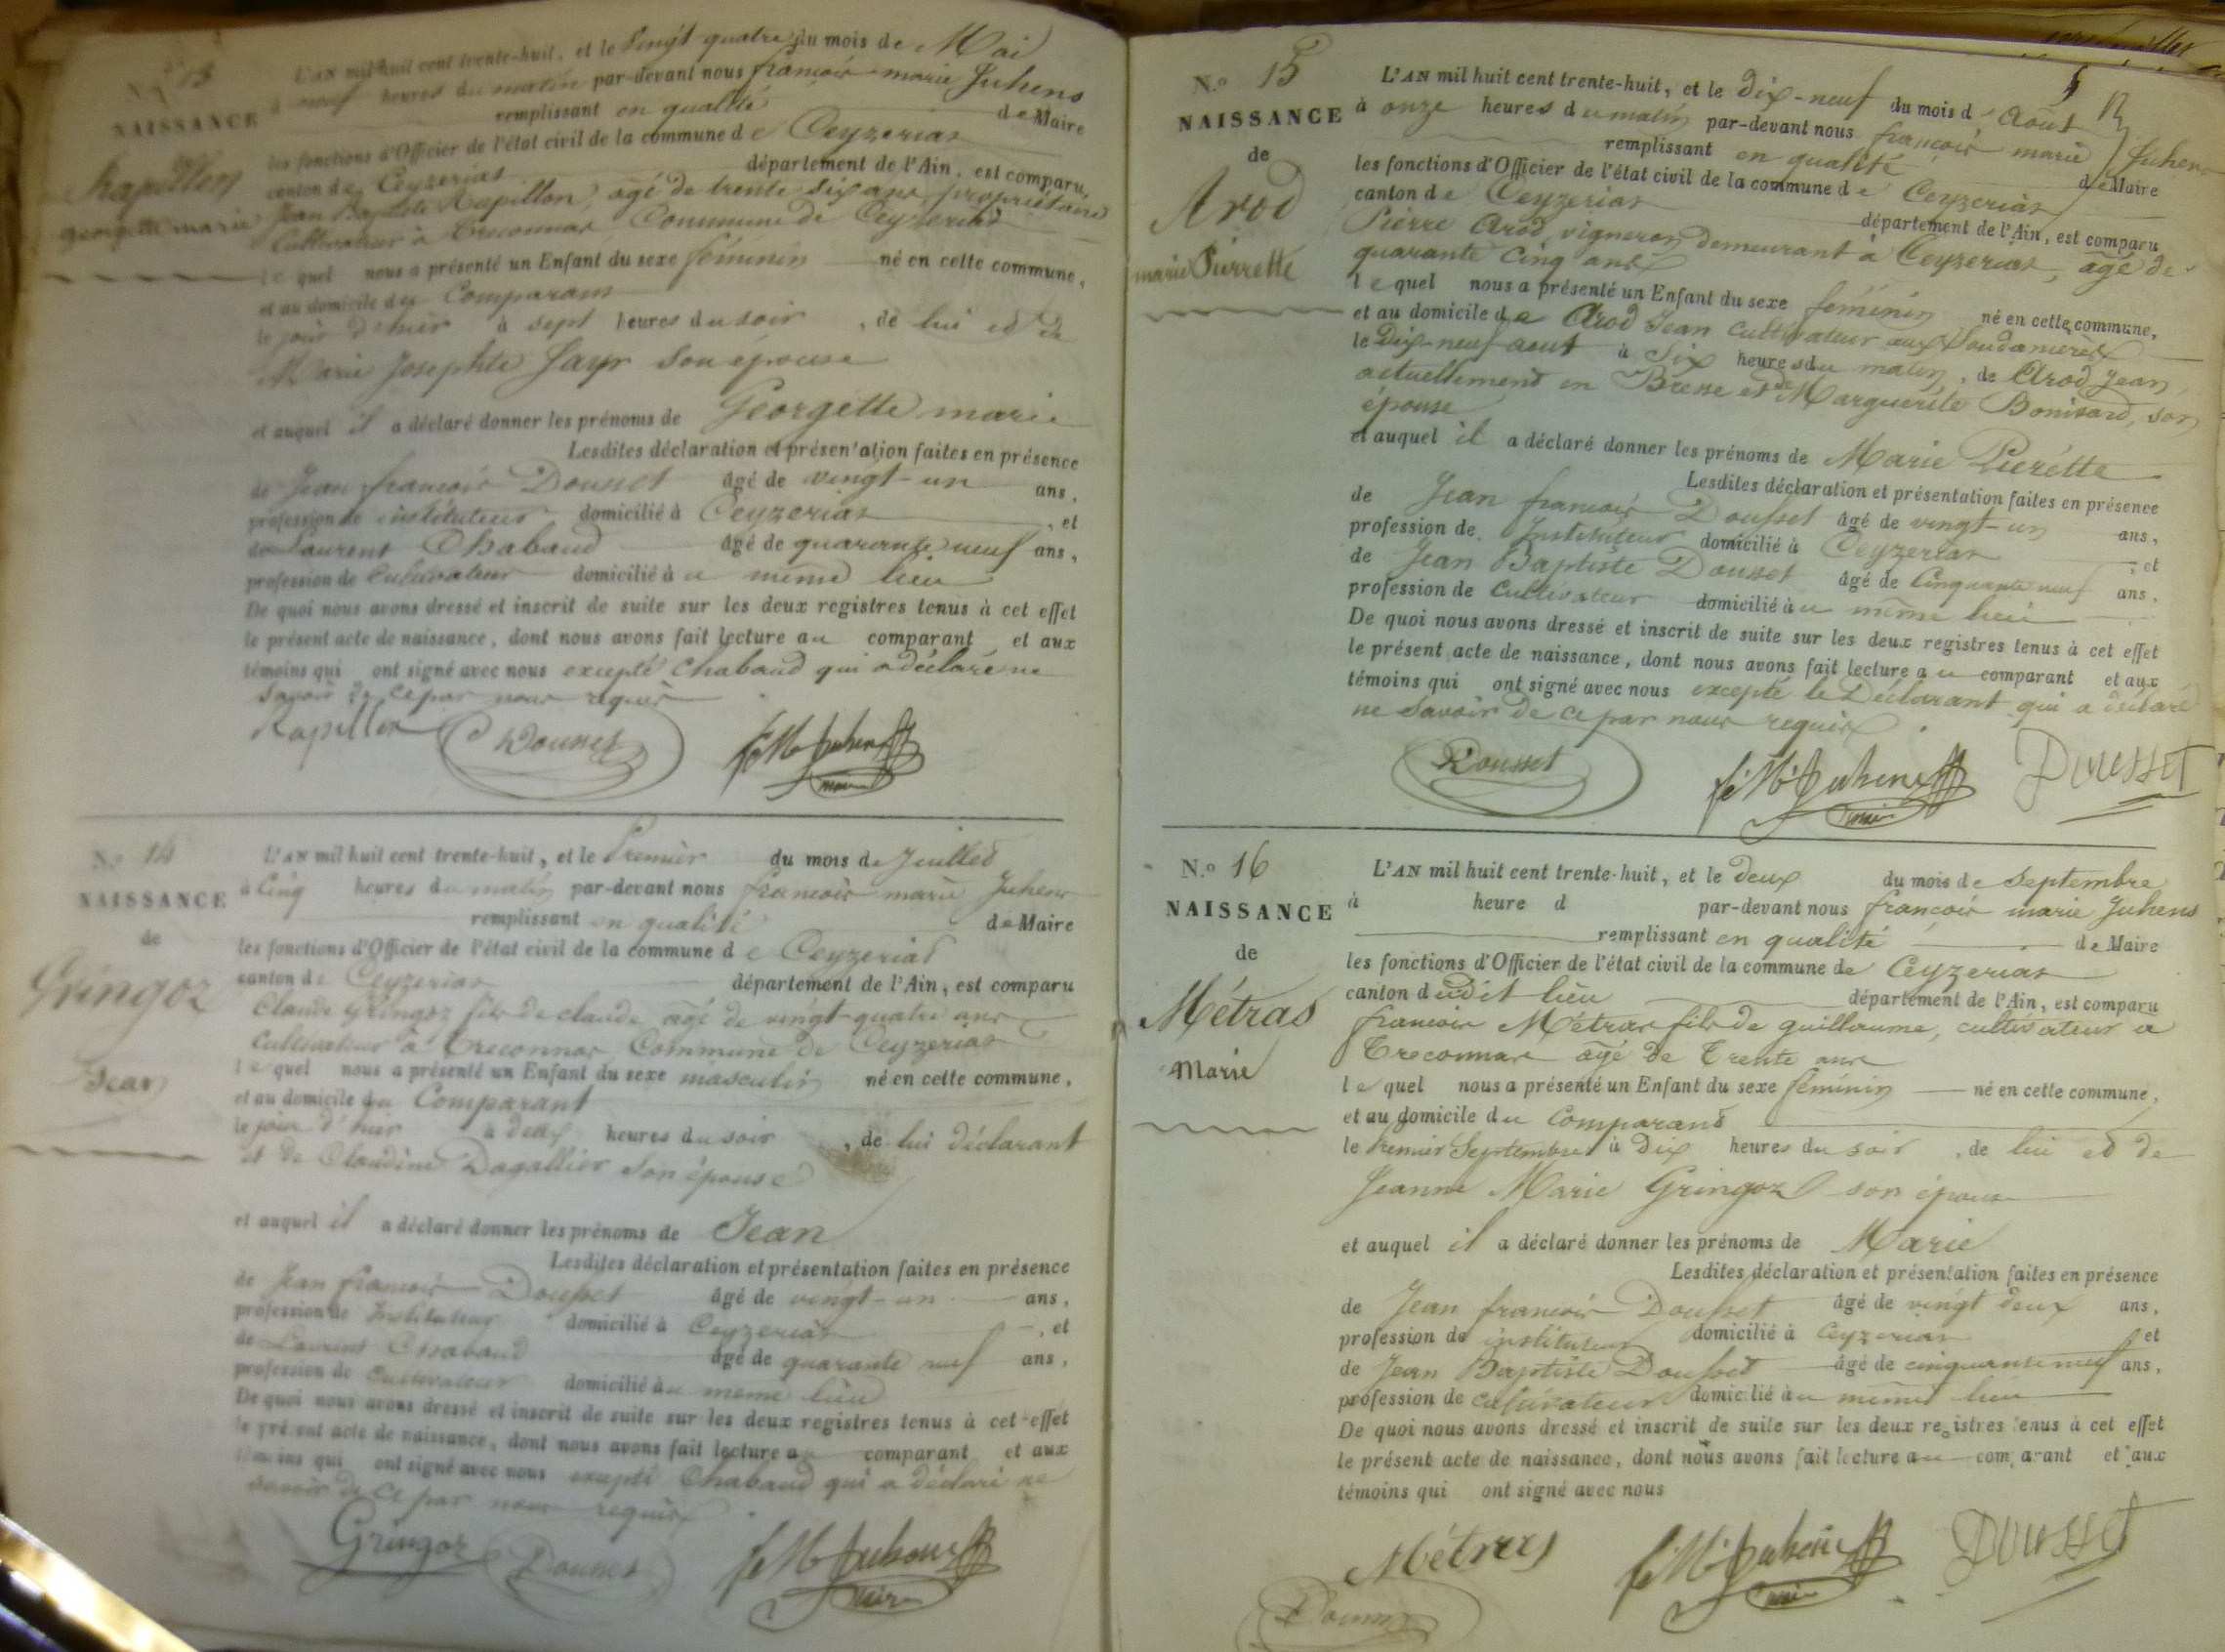 N.º 13
NAISSANCE
Rapillon
georgette marie
L'AN mil huit cent trente-huit, et le vingt quatre du mois de Mai
à neuf heures du matin par-devant nous françois marie Juhens
remplissant en qualité de Maire
les fonctions d'Officier de l'état civil de la commune de Ceyzerias
canton de Ceyzerias département de l'Ain, est comparu,
Jean Baptiste Rapillon, agé de trente six ans, propriétaire
Cultivateur à Treconnas Commune de Ceyzerias
lequel nous a présenté un Enfant du sexe féminin né en cette commune,
et au domicile du Comparant
le jour d'hier à sept heures du soir, de lui et de
Marie Josephte son épouse
et auquel il a déclaré donner les prénoms de Georgette marie
Lesdites déclaration et présentation faites en présence
de Jean francois Dousset âgé de vingt-un ans,
profession de instituteur domicilié à Ceyzerias, et
de Laurent Chabaud âgé de quarante neuf ans,
profession de Cultivateur domicilié au même lieu
De quoi nous avons dressé et inscrit de suite sur les deux registres tenus à cet effet
le présent acte de naissance, dont nous avons fait lecture au comparant et aux
témoins qui ont signé avec nous excepté Chabaud qui a déclaré ne
savoir de ce par nous requis
Rapillon Dousset f. M. Juhens
maire
N.º 14
NAISSANCE
de
Gringoz
Jean
L'AN mil huit cent trente-huit, et le Premier du mois de Juillet
à Cinq heures du matin par-devant nous francois marie Juhens
remplissant en qualité de Maire
les fonctions d'Officier de l'état civil de la commune de Ceyzerias
canton de Ceyzerias département de l'Ain, est comparu
Claude Gringoz fils de claude agé de vingt-quatre ans
Cultivateur à Treconnas Commune de Ceyzerias
lequel nous a présenté un Enfant du sexe masculin né en cette commune,
et au domicile du Comparant
le jour d'hier à deux heures du soir, de lui déclarant
et de Claudine Dagallier son épouse
et auquel il a déclaré donner les prénoms de Jean
Lesdites déclaration et présentation faites en présence
de Jean francois Dousset âgé de vingt-un ans,
profession de Instituteur domicilié à Ceyzerias, et
de Laurent Chabaud âgé de quarante neuf ans,
profession de Cultivateur domicilié au même lieu
De quoi nous avons dressé et inscrit de suite sur les deux registres tenus à cet effet
le présent acte de naissance, dont nous avons fait lecture au comparant et aux
témoins qui ont signé avec nous excepté Chabaud qui a déclaré ne
savoir de ce par nous requis
Gringoz Dousset f. M. Juhens
maire
N.º 15
NAISSANCE
de
Arod
marie Pierrette
L'AN mil huit cent trente-huit, et le Dix-neuf du mois d'Aout
à onze heures du matin par-devant nous françois marie Juhens
remplissant en qualité de Maire
les fonctions d'Officier de l'état civil de la commune de Ceyzerias
canton de Ceyzerias département de l'Ain, est comparu
Pierre Arod, vigneron demeurant à Ceyzerias, agé de
quarante cinq ans
lequel nous a présenté un Enfant du sexe féminin né en cette commune,
et au domicile de Arod Jean cultivateur aux
le Dix-neuf aout à Six heures du matin, de Arod Jean
actuellement en Bresse et de Marguerite Bonisard, son
épouse
et auquel il a déclaré donner les prénoms de Marie Pierétte
Lesdites déclaration et présentation faites en présence
de Jean francois Dousset âgé de vingt-un ans,
profession de Instituteur domicilié à Ceyzerias, et
de Jean Baptiste Dousset âgé de Cinquante neuf ans,
profession de Cultivateur domicilié au même lieu
De quoi nous avons dressé et inscrit de suite sur les deux registres tenus à cet effet
le présent acte de naissance, dont nous avons fait lecture au comparant et aux
témoins qui ont signé avec nous excepté le Déclarant qui a déclaré
ne savoir de ce par nous requis
Dousset f. M. Juhens Dousset
maire
N.º 16
NAISSANCE
de
Métras
Marie
L'AN mil huit cent trente-huit, et le deux du mois de Septembre
à heure d par-devant nous françois marie Juhens
remplissant en qualité de Maire
les fonctions d'Officier de l'état civil de la commune de Ceyzerias
canton dudit lieu département de l'Ain, est comparu
francois Métras fils de guillaume, cultivateur a
Treconnas agé de Trente ans
lequel nous a présenté un Enfant du sexe féminin né en cette commune,
et au domicile du Comparant
le Premier Septembre à Dix heures du soir, de lui et de
Jeanne Marie Gringoz son épouse
et auquel il a déclaré donner les prénoms de Marie
Lesdites déclaration et présentation faites en présence
de Jean francois Dousset âgé de vingt deux ans,
profession de instituteur domicilié à Ceyzerias et
de Jean Baptiste Dousset âgé de cinquante neuf ans,
profession de cultivateur domicilié au même lieu
De quoi nous avons dressé et inscrit de suite sur les deux registres tenus à cet effet
le présent acte de naissance, dont nous avons fait lecture au comparant et aux
témoins qui ont signé avec nous
Métras f. M. Juhens Dousset
maire
Dousset